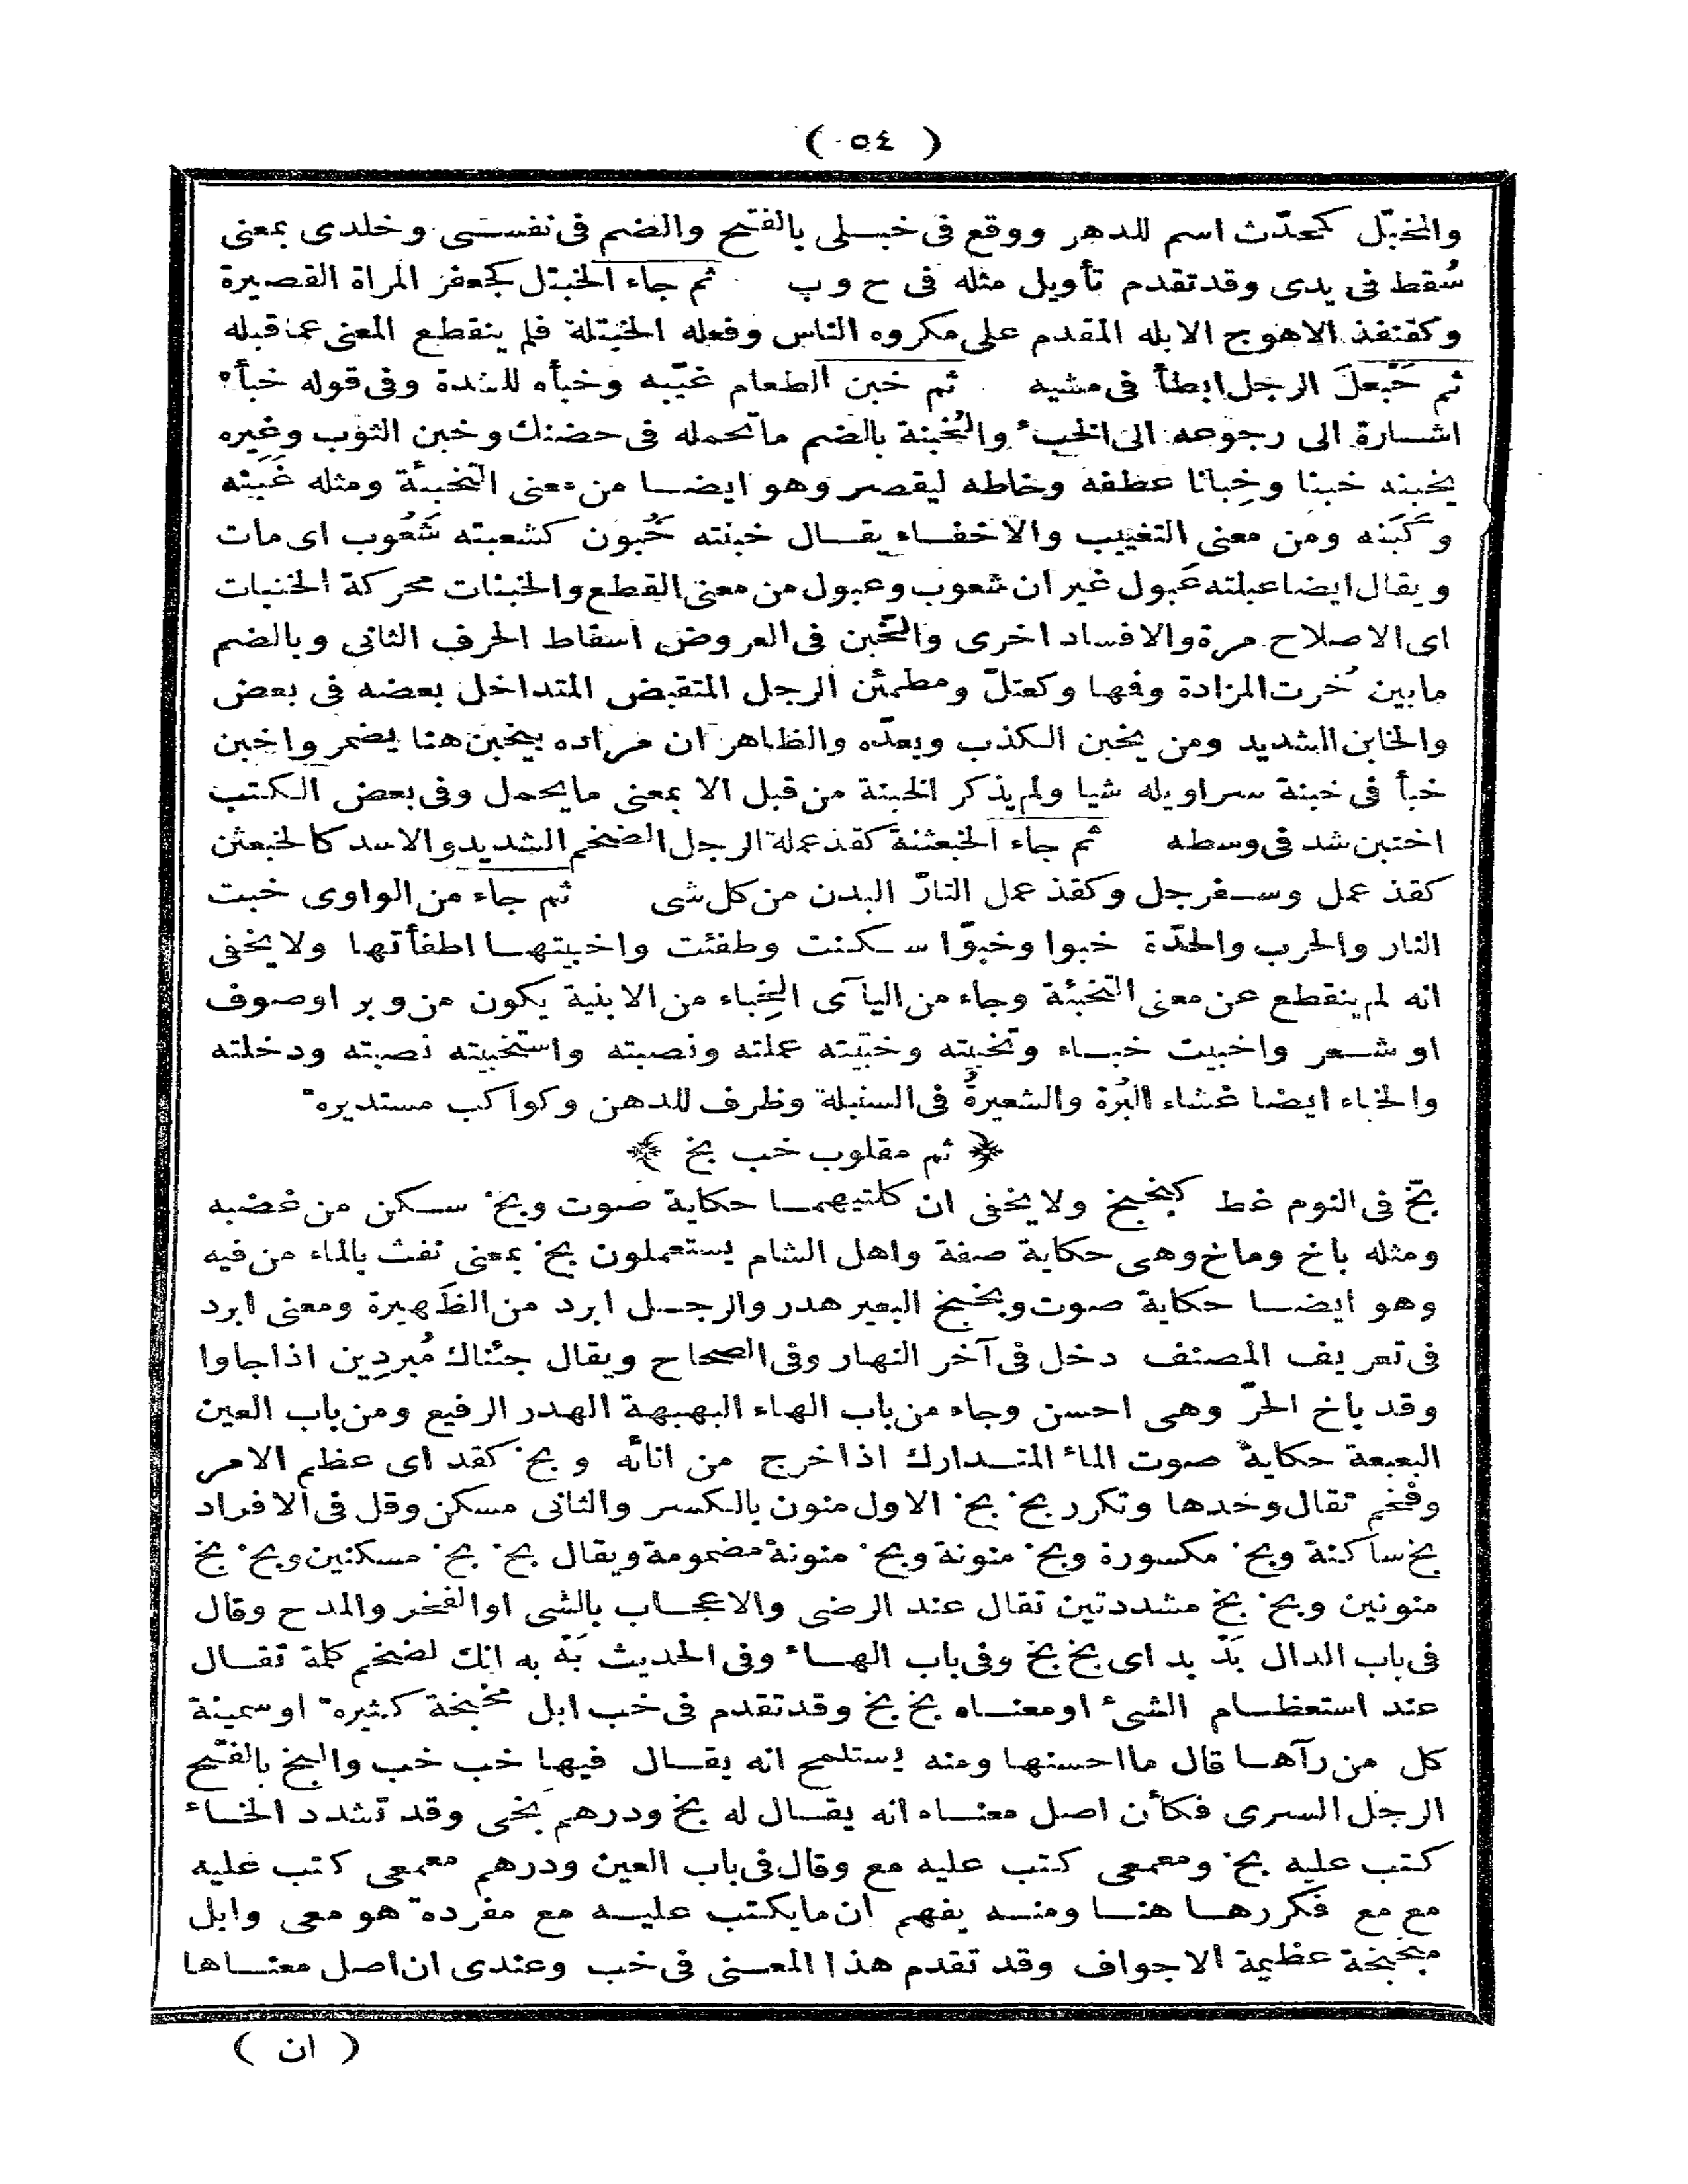 ( ٥٤ )
والمخبَّل كمحدّث اسم للدهر ووقع فى خبلى بالفتح والضم فى نفسى وخلدى بمعنى
سُقط فى يدى وقد تقدم تأويل مثله فى ح وب ثم جاء الخبتل كجعفر المراة القصيرة
وكقنفذ الاهوج الابله المقدم على مكروه الناس وفعله الخبتلة فلم ينقطع المعنى عما قبله
ثم خَبْعلَ الرجل ابطأ فى مشيه ثم خبن الطعام غيّبه وخبأه للشدة وفى قوله خبأه
اشارة الى رجوعه الى الخبء والخُبنة بالضم ما تحمله فى حضنك وخبن الثوب وغيره
يخبنه خبنا وخِبانا عطفه وخاطه ليقصر وهو ايضا من معنى التخبئة ومثله غَبَنه
وكَبَنه ومن معنى التغييب والاخفاء يقال خبنته خَبُون كشعبته شَعُوب اى مات
ويقال ايضا عبلته عَبول غير ان شعوب وعبول من معنى القطع والخبنات محركة الخنبات
اى الاصلاح مرة والافساد اخرى والخَبْن فى العروض اسقاط الحرف الثانى وبالضم
ما بين خُرت المزادة وفمها وكعتلّ ومطمئن الرجل المتقبض المتداخل بعضه فى بعض
والخابن الشديد ومن يخبن الكذب ويعدّه والظاهر ان مراده بيخبن هنا يضمر واخبن
خبأ فى خبنة سراويله شيا ولم يذكر الخبنة من قبل الا بمعنى ما يحمل وفى بعض الكتب
اختبن شد فى وسطه ثم جاء الخبعثنة كقذعملة الرجل الضخم الشديد والاسد كالخبعثن
كقذعمل وسفرجل وكقذعمل التارّ البدن من كل شى ثم جاء من الواوى خبت
النار والحرب والحدّة خبوا وخبوّا سكنت وطفئت واخبيتها اطفأتها ولا يخفى
انه لم ينقطع عن معنى التخبئة وجاء من اليآى الخِباء من الابنية يكون من وبر او صوف
او شعر واخبيت خباء وتخبيته وخبّيته عملته ونصبته واستخبيته نصبته ودخلته
والخباء ايضا غشاء البُرة والشعيرة فى السنبلة وظرف للدهن وكواكب مستديرة
﴿ ثم مقلوب خب بخ ﴾
بخّ فى النوم غط كبخبخ ولا يخفى ان كلتيهما حكاية صوت وبخ سكن من غضبه
ومثله باخ وماخ وهى حكاية صفة واهل الشام يستعملون بخ بمعنى نفث بالماء من فيه
وهو ايضا حكاية صوت وبخبخ البعير هدر والرجل ابرد من الظَهيرة ومعنى ابرد
فى تعريف المصنف دخل فى آخر النهار وفى الصحاح ويقال جئناك مُبرِدين اذا جاوا
وقد باخ الحرّ وهى احسن وجاء من باب الهاء البهبهة الهدر الرفيع ومن باب العين
البعبعة حكاية صوت الماء المتدارك اذا خرج من انائه و بخ كقد اى عظم الامر
وفخم تقال وحدها وتكرر بخ بخ الاول منون بالكسر والثانى مسكن وقل فى الافراد
بخ ساكنة وبخ مكسورة وبخ منونة وبخ منونة مضمومة ويقال بخ بخ مسكنين وبخ بخ
منونين وبخ بخ مشددتين تقال عند الرضى والاعجاب بالشى او الفخر والمدح وقال
فى باب الدال بَدْ بد اى بخ بخ وفى باب الهاء وفى الحديث بَهْ به انك لضخم كلمة تقال
عند استعظام الشئ او معناه بخ بخ وقد تقدم فى خب ابل مخبخبة كثيرة او سمينة
كل من رآها قال ما احسنها ومنه يستلمح انه يقال فيها خب خب والبخ بالفتح
الرجل السرى فكأن اصل معناه انه يقال له بخ ودرهم بخى وقد تشدد الخاء
كتب عليه بخ ومعمعى كتب عليه مع وقال فى باب العين ودرهم معمعى كتب عليه
مع مع فكررها هنا ومنه يفهم ان ما يكتب عليه مع مفردة هو معى وابل
مبخبخة عظيمة الاجواف وقد تقدم هذا المعنى فى خب وعندى ان اصل معناها
( ان )